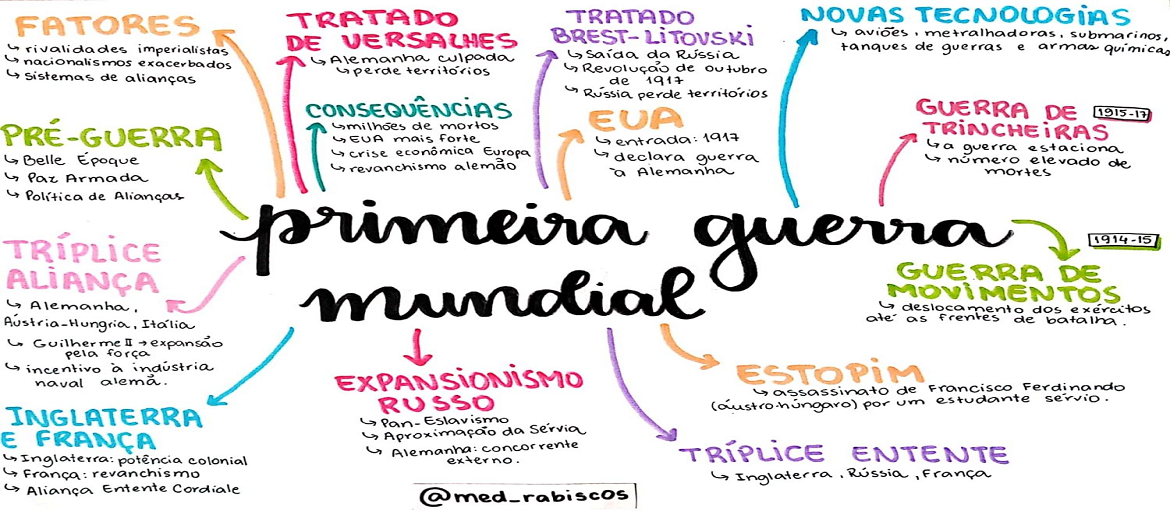 FATORES
↳ rivalidades imperialistas
↳ nacionalismos exacerbados
↳ sistemas de alianças
TRATADO
DE VERSALHES
↳ Alemanha culpada
↳ perde territórios
TRATADO
BREST-LITOVSKI
↳ Saída da Rússia
↳ Revolução de outubro
de 1917
↳ Rússia perde territórios
NOVAS TECNOLOGIAS
↳ aviões, metralhadoras, submarinos,
tanques de guerras e armas químicas
PRÉ-GUERRA
↳ Belle Époque
↳ Paz Armada
↳ Política de Alianças
CONSEQUÊNCIAS
↳ milhões de mortos
↳ EUA mais forte
↳ crise econômica Europa
↳ revanchismo alemão
EUA
↳ entrada: 1917
↳ declara guerra
à Alemanha
GUERRA DE 1915-17
TRINCHEIRAS
↳ a guerra estaciona
↳ número elevado de
mortes
primeira guerra
mundial
TRÍPLICE
ALIANÇA
↳ Alemanha,
Aústria-Hungria, Itália
↳ Guilherme II → expansão
pela força
↳ incentivo à indústria
naval alemã.
1914-15
GUERRA DE
MOVIMENTOS
↳ deslocamento dos exércitos
até as frentes de batalha.
INGLATERRA
E FRANÇA
↳ Inglaterra: potência colonial
↳ França: revanchismo
↳ Aliança Entente Cordiale
EXPANSIONISMO
RUSSO
↳ Pan-Eslavismo
↳ Aproximação da Sérvia
↳ Alemanha: concorrente
externo.
ESTOPIM
↳ assassinato de Francisco Ferdinando
(áustro-húngaro) por um estudante sérvio.
TRÍPLICE ENTENTE
↳ Inglaterra, Rússia, França
@med_rabiscos